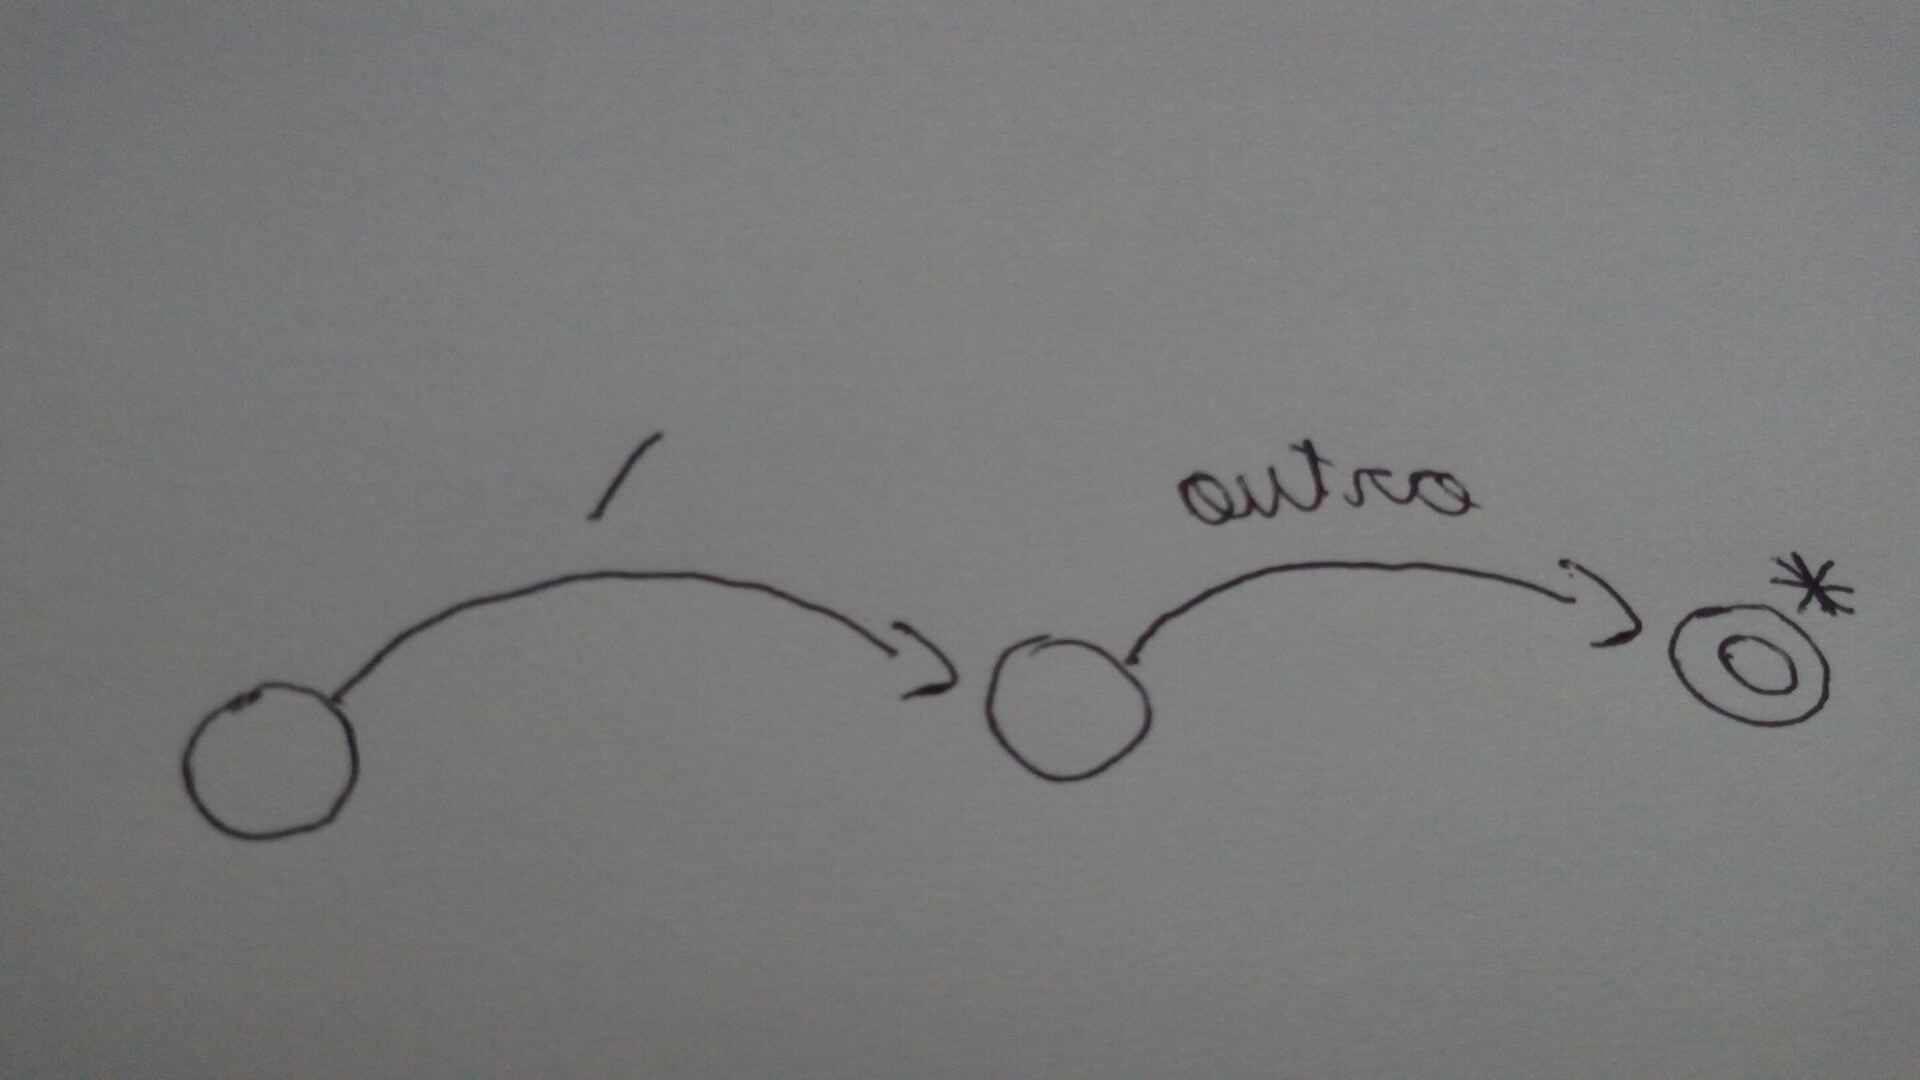 /
outro
*